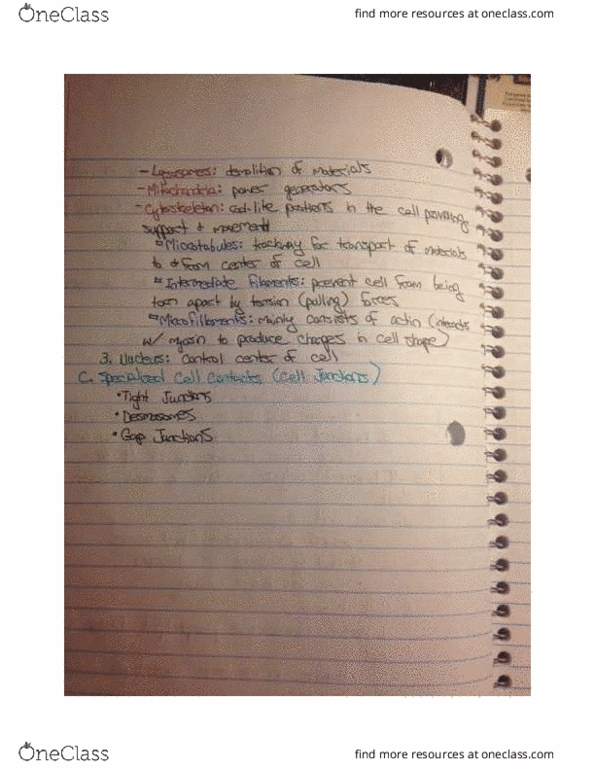 OneClass
find more resources at oneclass.com
- Lysosomes: demolition of materials
- Mitochondria: power generators
- Cytoskeleton: rod-like proteins in the cell providing
support & movement
Microtubules: trackway for transport of materials
to & from center of cell
Intermediate Filaments: prevent cell from being
torn apart by tension (pulling) forces
Microfilaments: mainly consists of actin (interacts
w/ myosin to produce changes in cell shape)
3. Nucleus: control center of cell
C. Specialized Cell Contacts (Cell Junctions)
• Tight Junctions
• Desmosomes
• Gap Junctions
OneClass
find more resources at oneclass.com